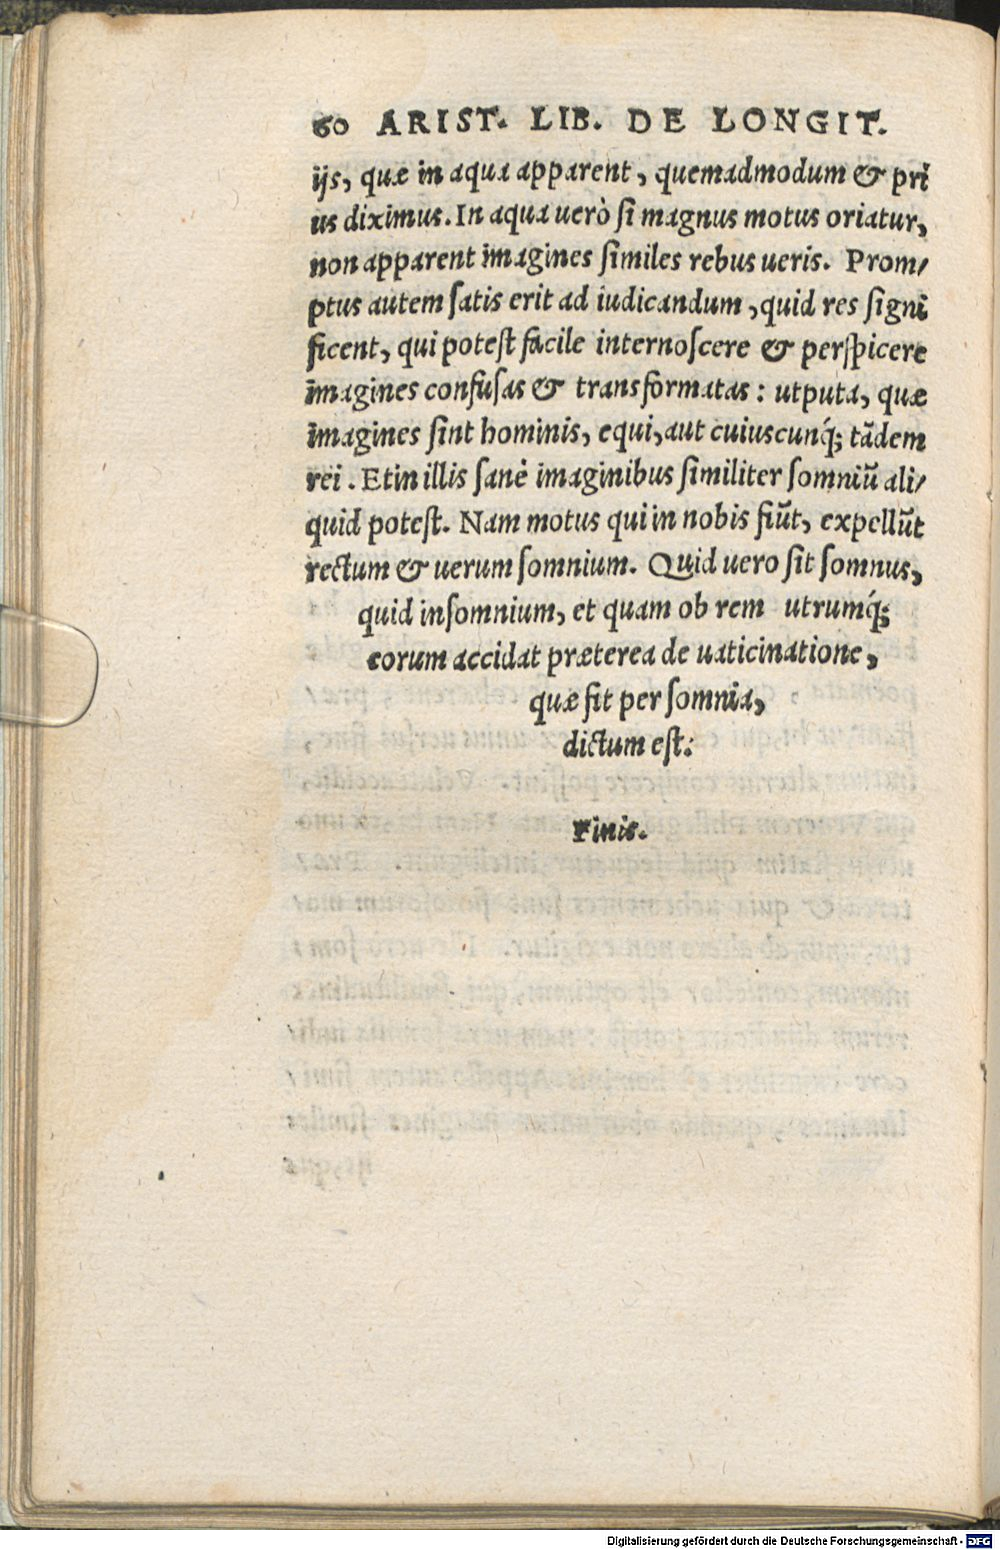 60 ARIST. LIB. DE LONGIT.
ijs, quæ in aqua apparent, quemadmodum & pri
us diximus. In aqua uerò si magnus motus oriatur,
non apparent imagines similes rebus ueris. Prom/
ptus autem satis erit ad iudicandum, quid res signi
ficent, qui potest facile internoscere & perspicere
imagines confusas & transformatas: utputa, quæ
imagines sint hominis, equi, aut cuiuscunq́; tãdem
rei. Et in illis sanè imaginibus similiter somniũ ali/
quid potest. Nam motus qui in nobis fiũt, expellũt
rectum & uerum somnium. Quid uero sit somnus,
quid insomnium, et quam ob rem utrumq́;
eorum accidat præterea de uaticinatione,
quæ fit per somnia,
dictum est.
Finis.
Digitalisierung gefördert durch die Deutsche Forschungsgemeinschaft - DFG